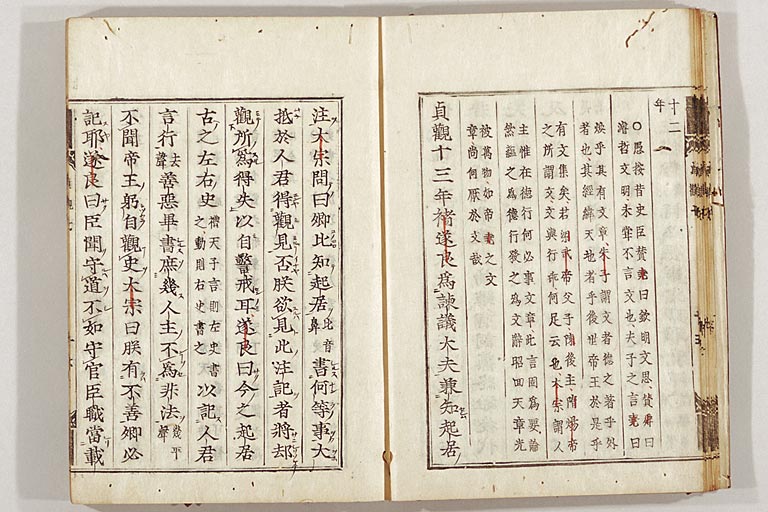 十二
年
○愚按昔史臣贊堯曰欽明文思贊舜曰
濬哲文明未嘗不言文也夫子之言堯曰
煥乎其有文章朱子謂文者德之著乎外
者也其經緯天地者乎後世帝王於是乎
有文集矣若梁武帝父子陳後主隋煬帝
之所謂文文與行乖何足云也太宗謂人
主惟在德行何必事文章此言固為要論
然蘊之為德行發之為文辭昭回天章光
被萬物如帝堯之文
章尚何厭於文哉
貞觀十三年褚遂良為諫議大夫兼知起居
注太宗問曰卿比知起居比音鼻書何等事大
抵於人君得觀見否朕欲見此注記者將却
觀所為得失以自警戒耳遂良曰今之起居
古之左右史禮天子言則左史書之動則右史書之以記人君
言行去聲善惡畢書庶幾人主不為非法幾平聲
不聞帝王躬自觀史太宗曰朕有不善卿必
記耶遂良曰臣聞守道不如守官臣職當載